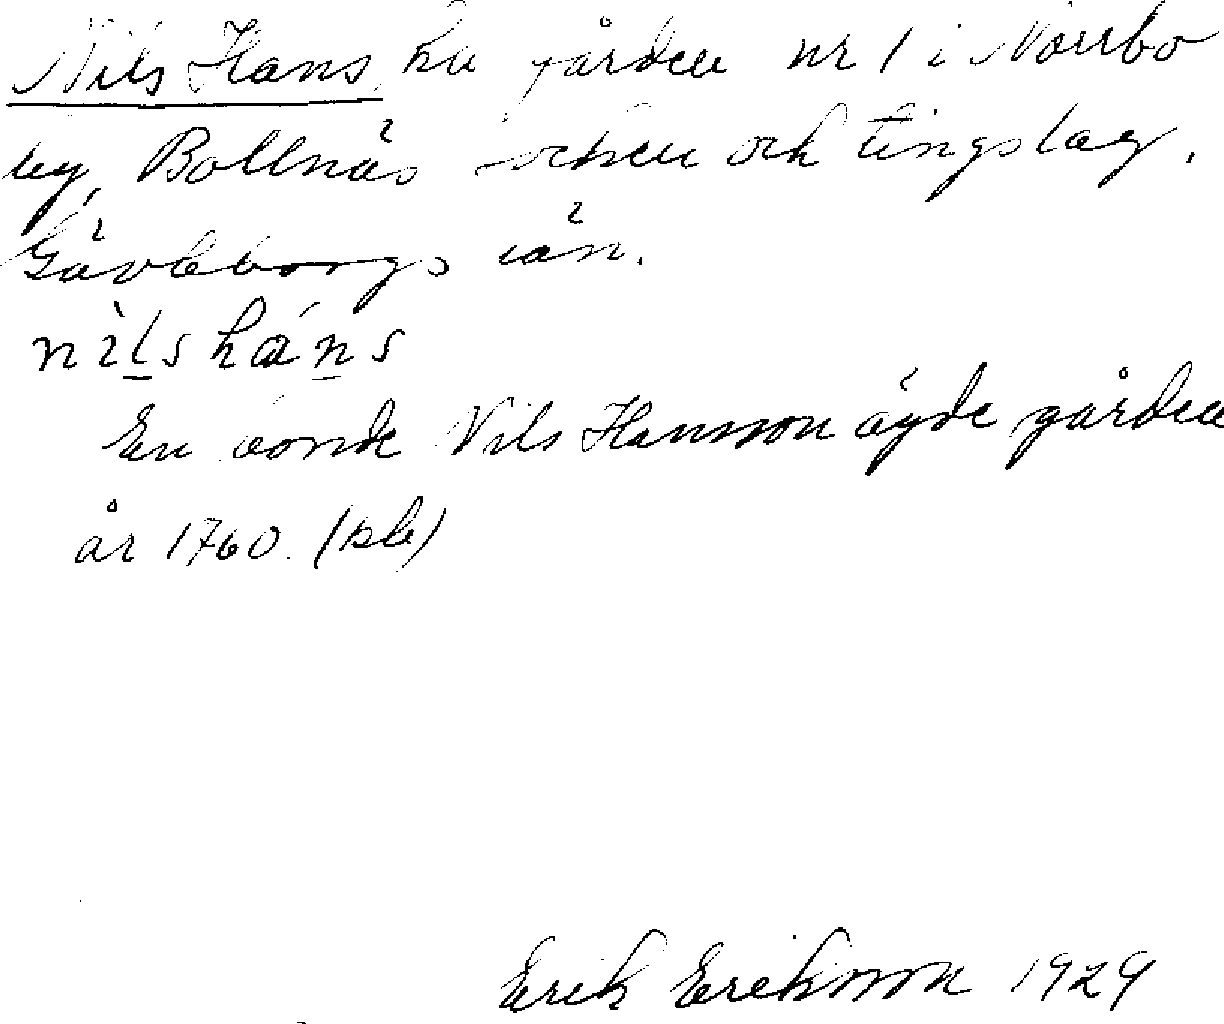 Nils Hans, hu gården nr 1 i Norrbo
by, Bollnäs socken och tingslag,
Gävleborgs län.
nìlshán̲s
En bonde Nils Hansson ägde gården
år 1760. (kb)
Erik Eriksson 1929